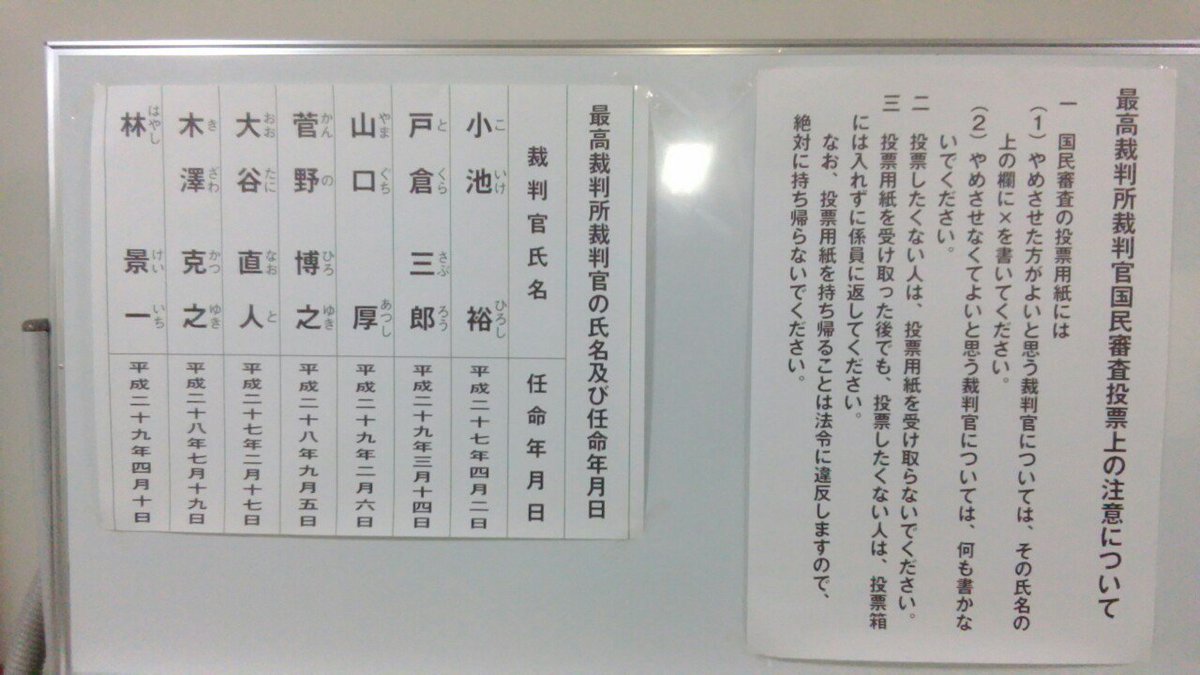 最高裁判所裁判官国民審査投票上の注意について
一　国民審査の投票用紙には
（1）やめさせた方がよいと思う裁判官については、その氏名の
上の欄に×を書いてください。
（2）やめさせなくてよいと思う裁判官については、何も書かな
いでください。
二　投票したくない人は、投票用紙を受け取らないでください。
三　投票用紙を受け取った後でも、投票したくない人は、投票箱
には入れずに係員に返してください。
なお、投票用紙を持ち帰ることは法令に違反しますので、
絶対に持ち帰らないでください。
最高裁判所裁判官の氏名及び任命年月日
裁判官氏名　任命年月日
小池　裕　こいけ　ひろし　平成二十七年四月二日
戸倉三郎　とくら　さぶろう　平成二十九年三月十四日
山口　厚　やまぐち　あつし　平成二十九年二月六日
菅野博之　かんの　ひろゆき　平成二十八年九月五日
大谷直人　おおたに　なおと　平成二十七年二月十七日
木澤克之　きざわ　かつゆき　平成二十八年七月十九日
林　景一　はやし　けいいち　平成二十九年四月十日